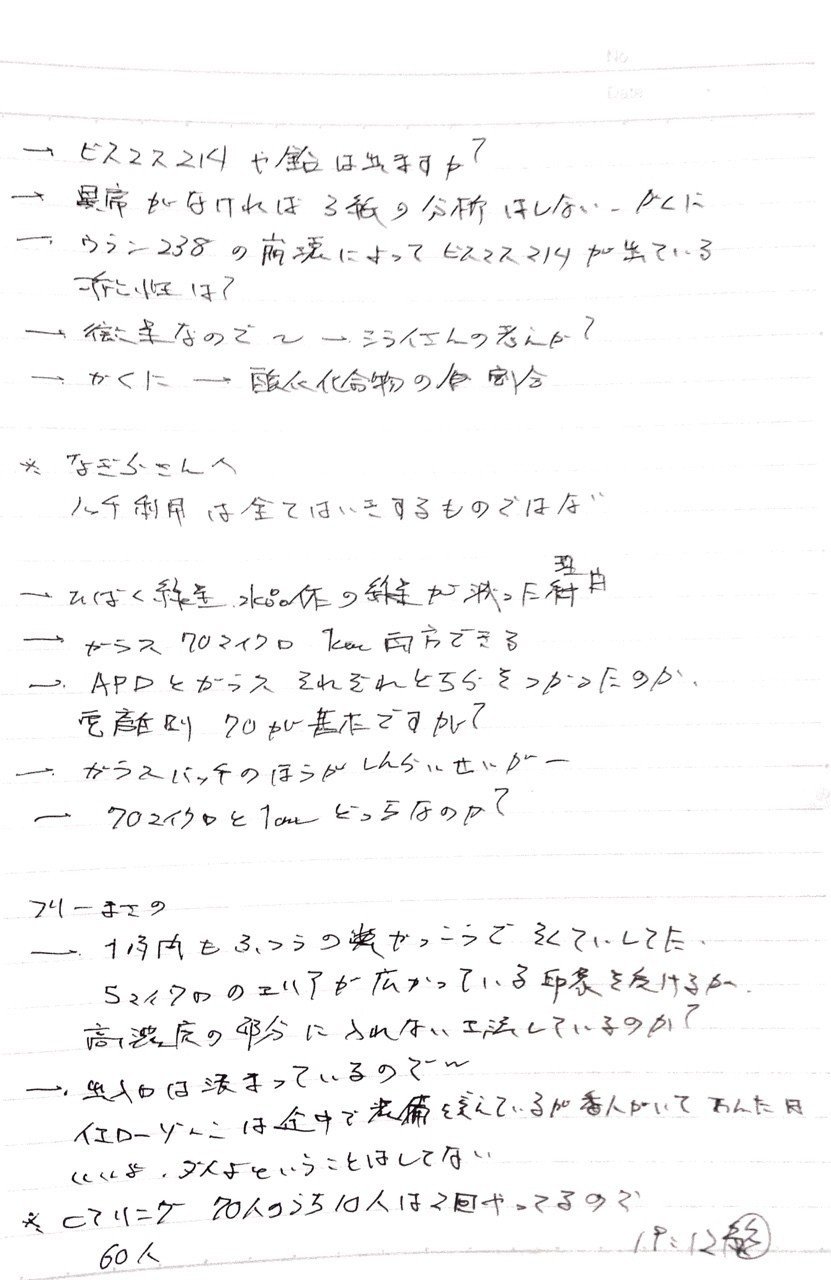 No.
Date
→ ビスマス214 や鉛は出ますか?
→ 異常がなければ ろ紙の分析はしない – かくに
→ ウラン238の崩壊によってビスマス214が出ている
可能性は?
→ 微量なので 〜 → ミライさんの考えか?
→ かくに → 酸化化合物の 割合
※ なぎらさんへ
は全てはいきするものではない
→ ひばく線量 の線量が減った理由
→ ガラス 70マイクロ 1cm 両方できる
→ APDとガラス それぞれどちらをつかったのか、
電離則 70が基本ですか?
→ ガラスバッチのほうがしんらいせいがー
→ 70マイクロと1cm どっちなのか?
フリーまさの
→ もふつうのかっこうで そくていしてた、
5マイクロのエリアが広がっている印象を受けるが、
高濃度の部分に入れない工法しているのか?
→ 出入口は決まっているので〜
イエローゾーンは途中で装備を変えているが番人がいてあんたは
いいよ、ダメよということはしてない
※ ヒアリング 70人のうち10人は2回やってるので
60人
19:12 終